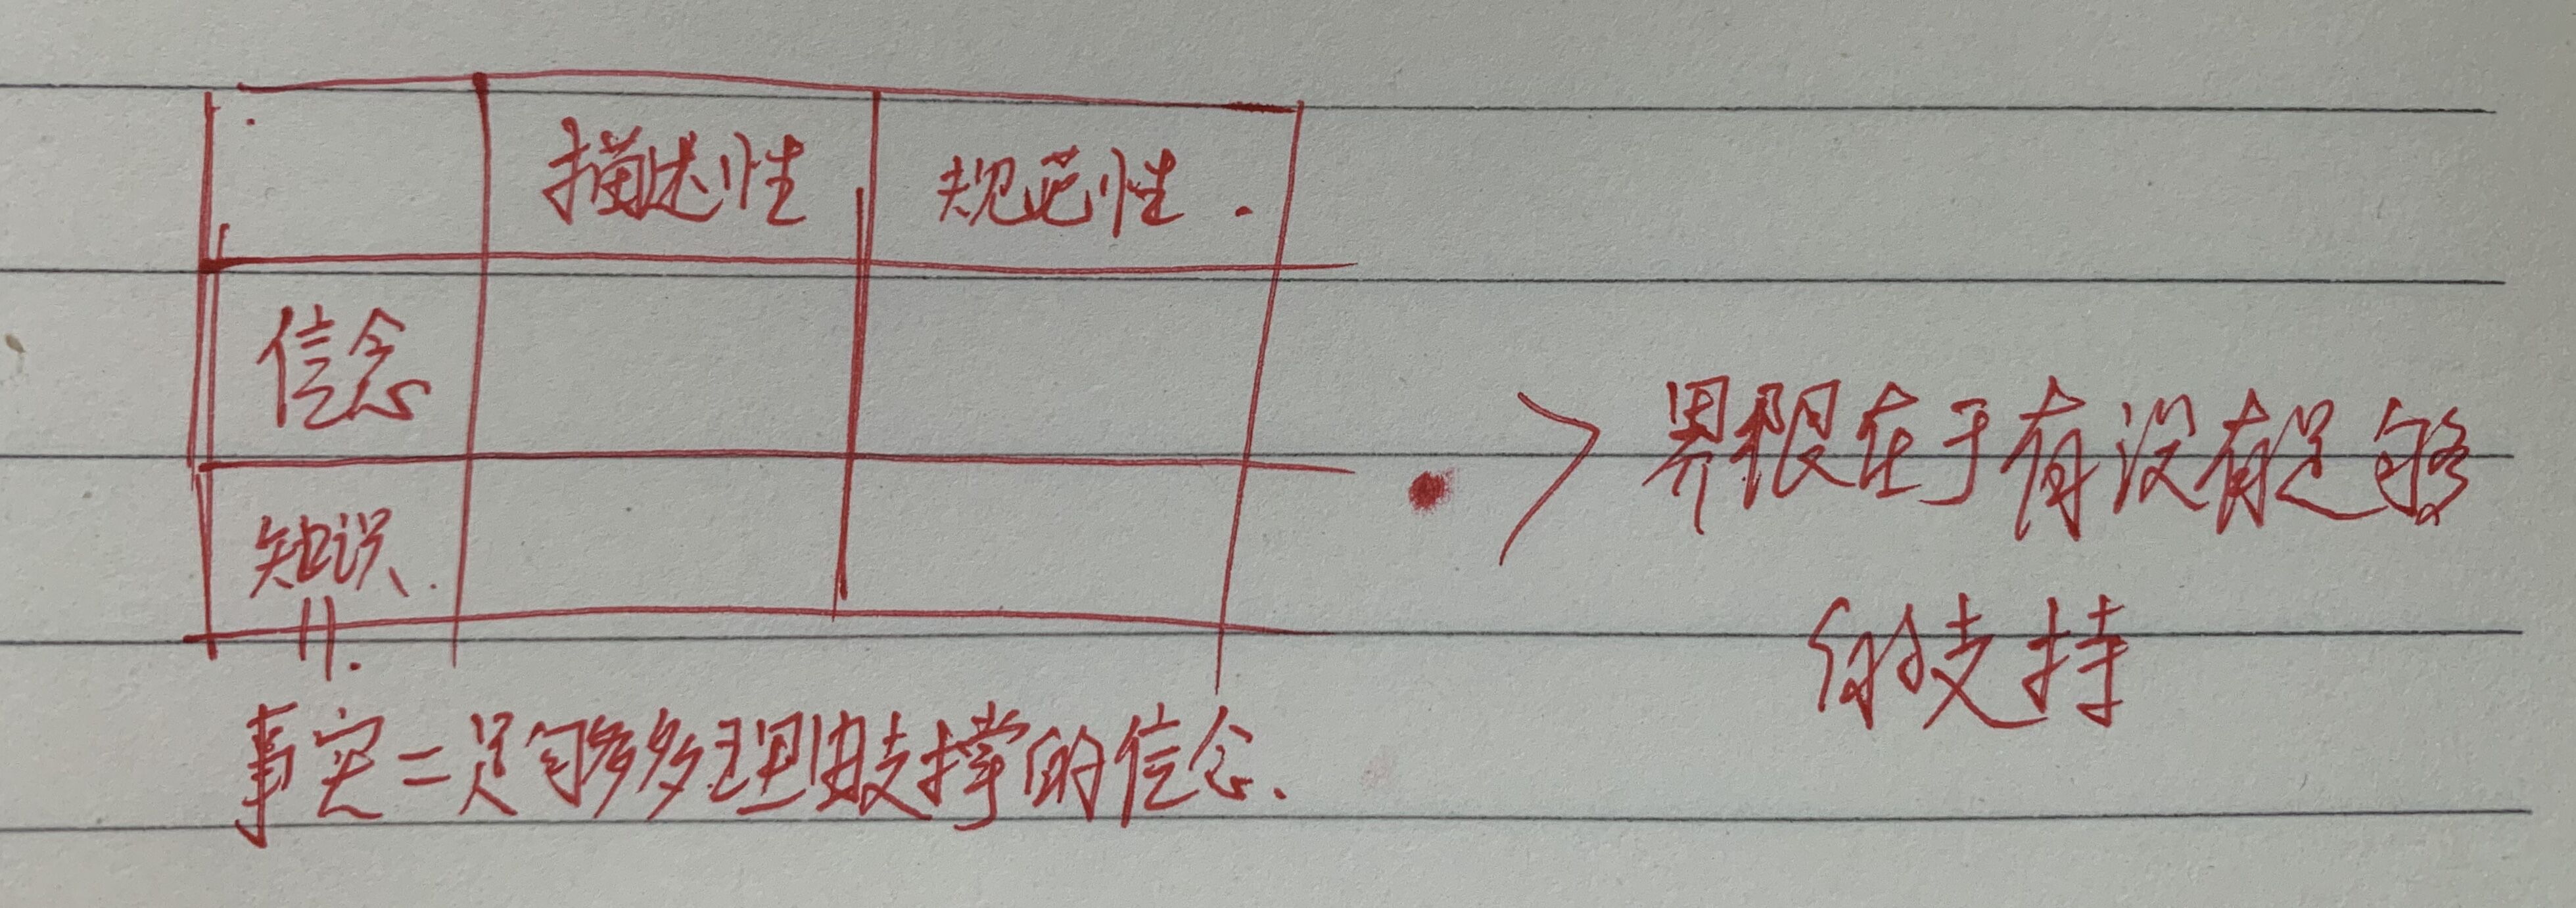 描述性 规范性.
信念
界限在于有没有足够
的支持
知识.
||.
事实=足够多理由支撑的信念.